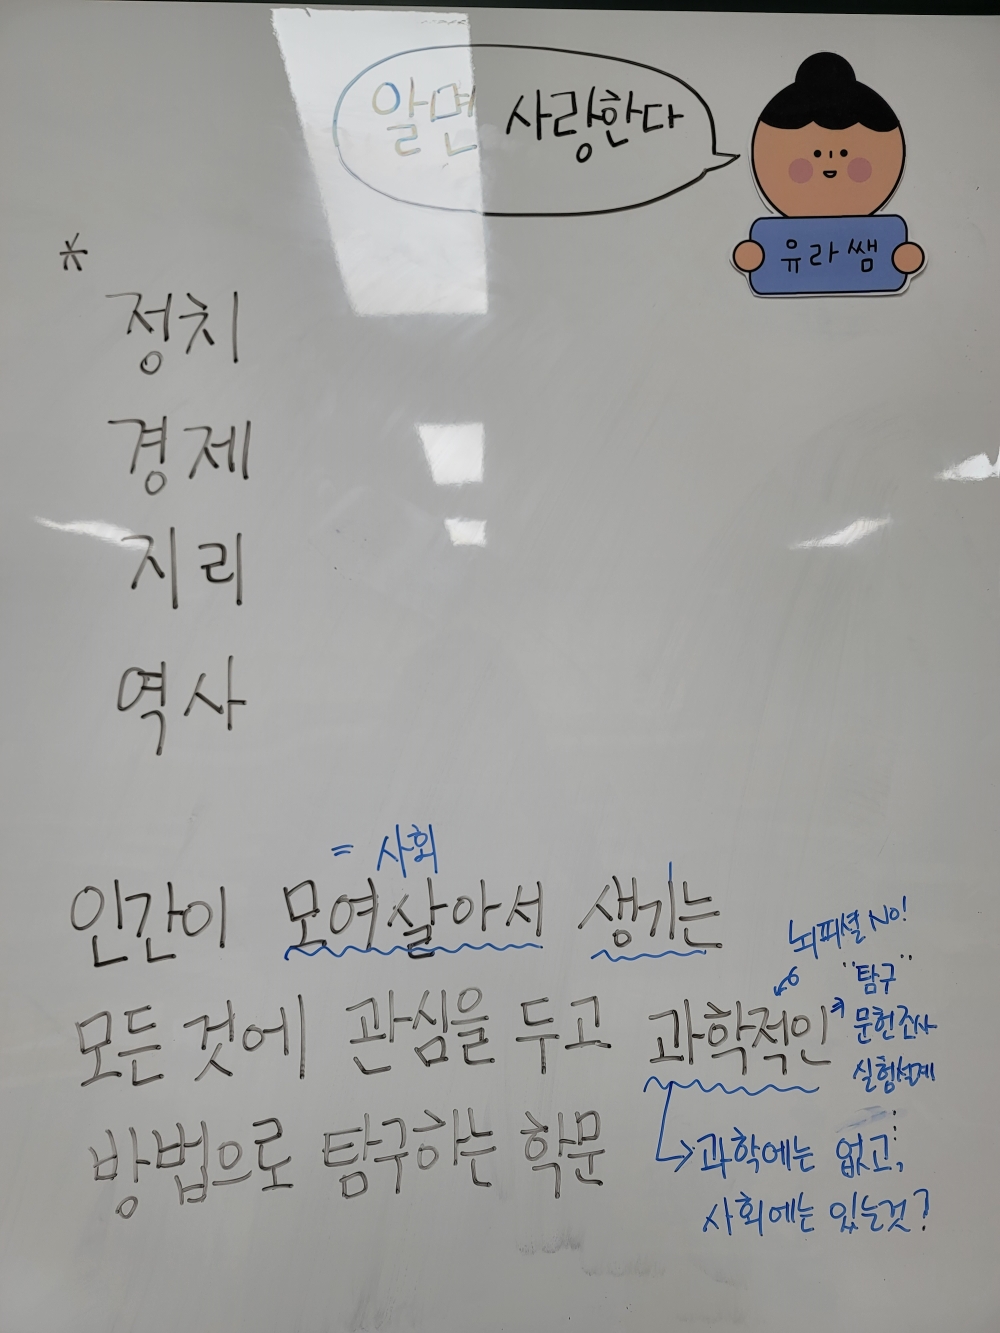 알면 사랑한다
유라쌤
*
정치
경제
지리
역사
= 사회
인간이 모여살아서 생기는
모든 것에 관심을 두고 과학적인
방법으로 탐구하는 학문
뇌피셜 NO!
"탐구"
문헌조사
실험설계
⋮
→과학에는 없고,
사회에는 있는것?